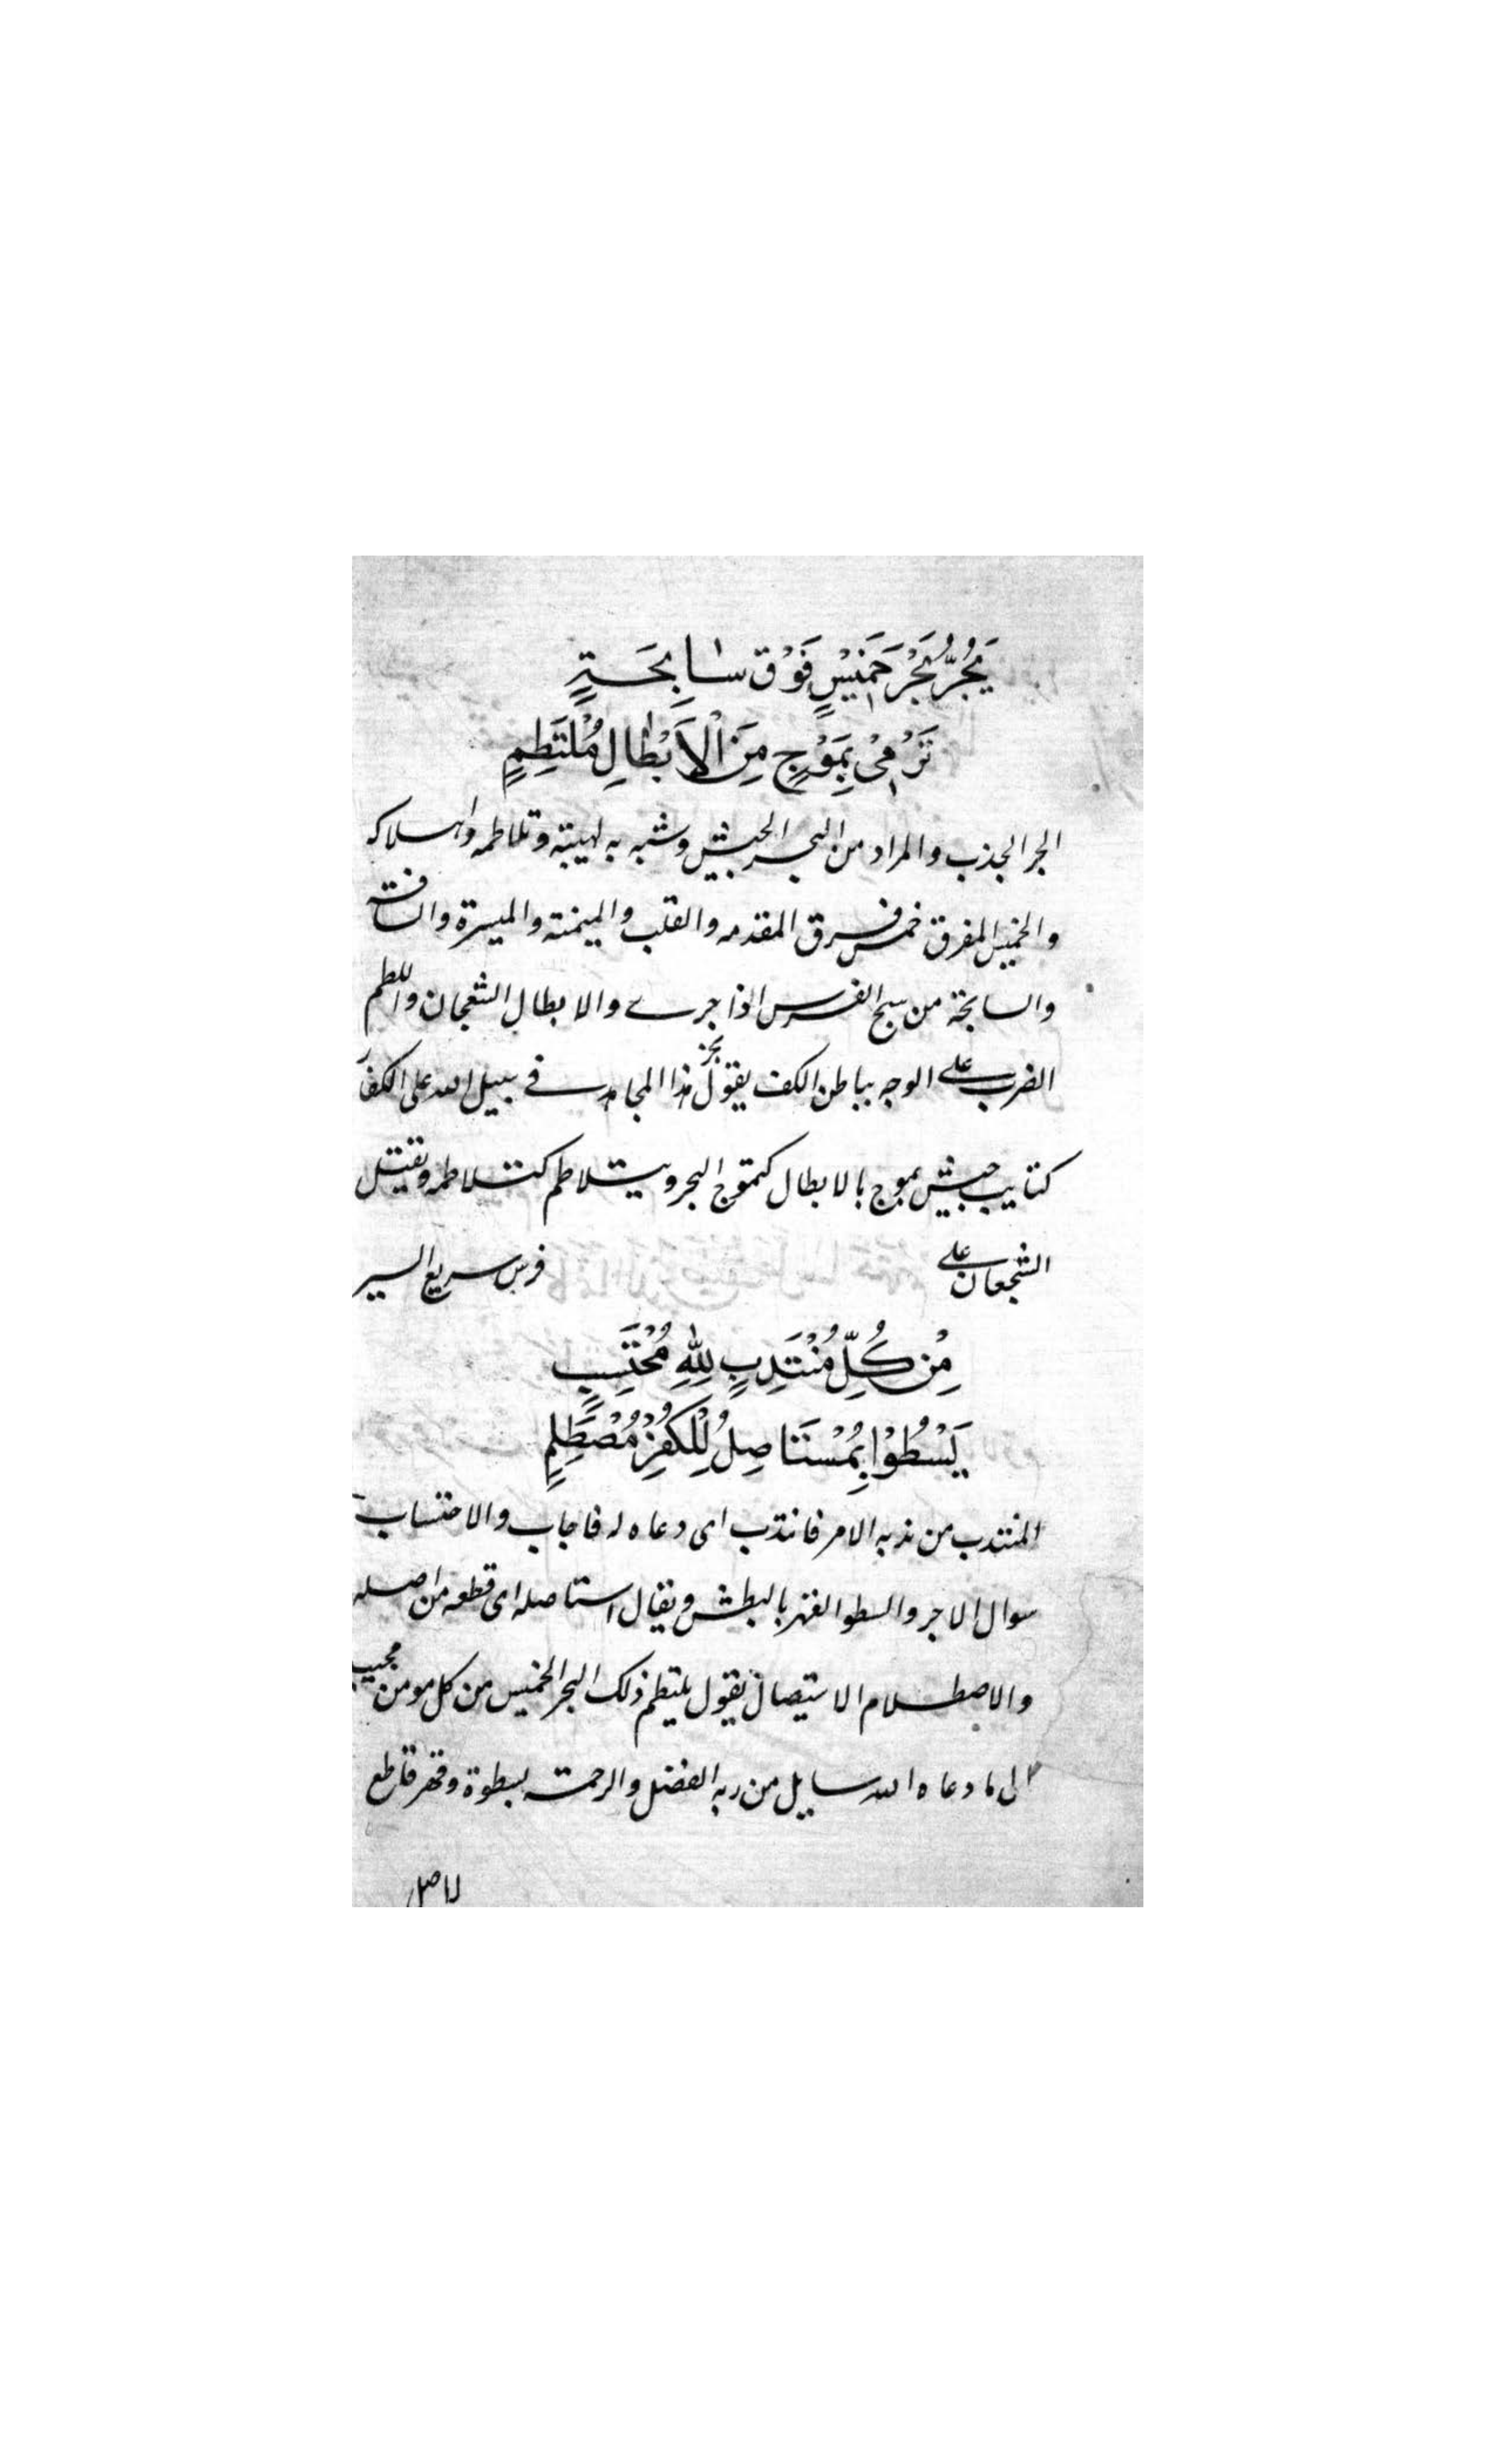 يَجُرُّ بَحْرَ خَمِيْسٍ فَوْقَ سَابِحَةٍ
تَرْمِيْ بِمَوْجٍ مِنَ الْاَبْطَالِ مُلْتَطِمٍ
الجر الجذب والمراد من البحر الجيش وشبه به لهيبته وتلاطمه واهلاكه
والخميس المفرق خمس فرق المقدمه والقلب والميمنة والميسرة والساقة
والسابحة من سبح الفرس اذا جرے والابطال الشجعان واللطم
الضرب على الوجه بباطن الكف يقول يجر هذا المجاهد فے سبيل الله على الكفار
كتايب جيش يموج بالابطال كتموج البحر ويتلاطم كتلاطمه ويقتل
الشجعان على فرس سريع السير
مِنْ كُلِّ مُنْتَدِبٍ لِلّٰهِ مُحْتَسِبٍ
يَسْطُوْا بِمُسْتَاصِلٍ لِلْكُفْرِ مُصْطَلِمٍ
المنتدب من ندبه الامر فانتدب اى دعاه له فاجاب والاحتساب
سوال الاجر والسطو القهر بالبطش ويقال استاصله اى قطعه من اصله
والاصطلام الاستيصال يقول يلتطم ذلك البحر الخميس من كل مومن مجيب
الى ما دعاه الله سايل من ربه الفضل والرحمة بسطوة وقهر قاطع
لاصل